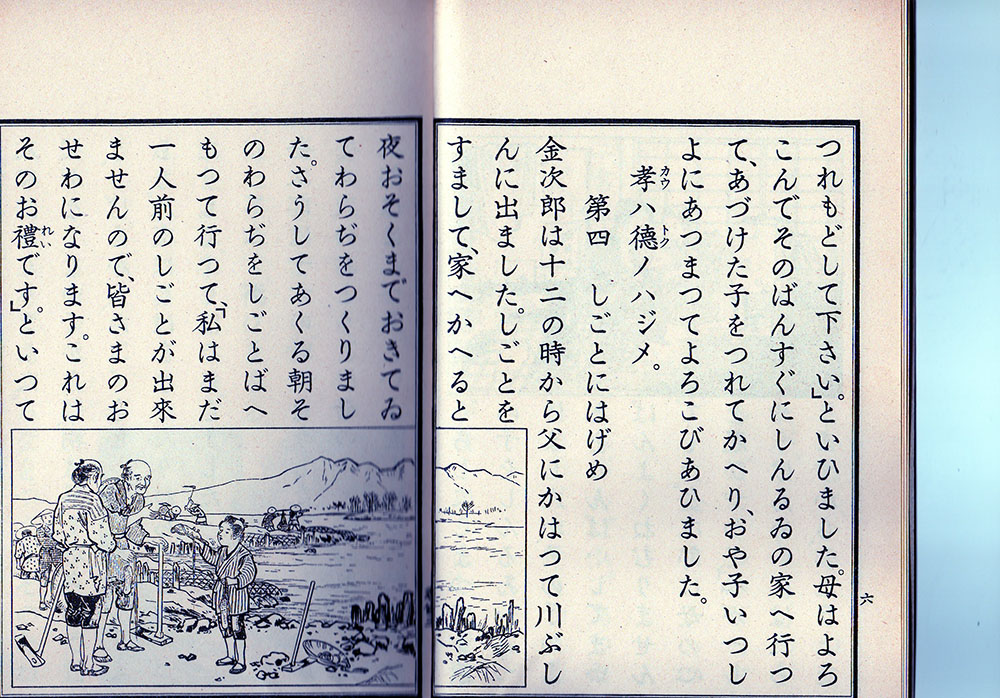 つれもどして下さい。」といひました。母はよろ
こんでそのばんすぐにしんるゐの家へ行つ
て、あづけた子をつれてかへり、おや子いつし
よにあつまつてよろこびあひました。
孝ハ德ノハジメ。
カウ
トク
第四 しごとにはげめ
金次郎は十二の時から父にかはつて川ぶし
んに出ました。しごとを
すまして、家へかへると
六
夜おそくまでおきてゐ
てわらぢをつくりまし
た。さうしてあくる朝そ
のわらぢをしごとばへ
もつて行つて、「私はまだ
一人前のしごとが出來
ませんので、皆さまのお
せわになります。これは
そのお禮です。」といつて
れい